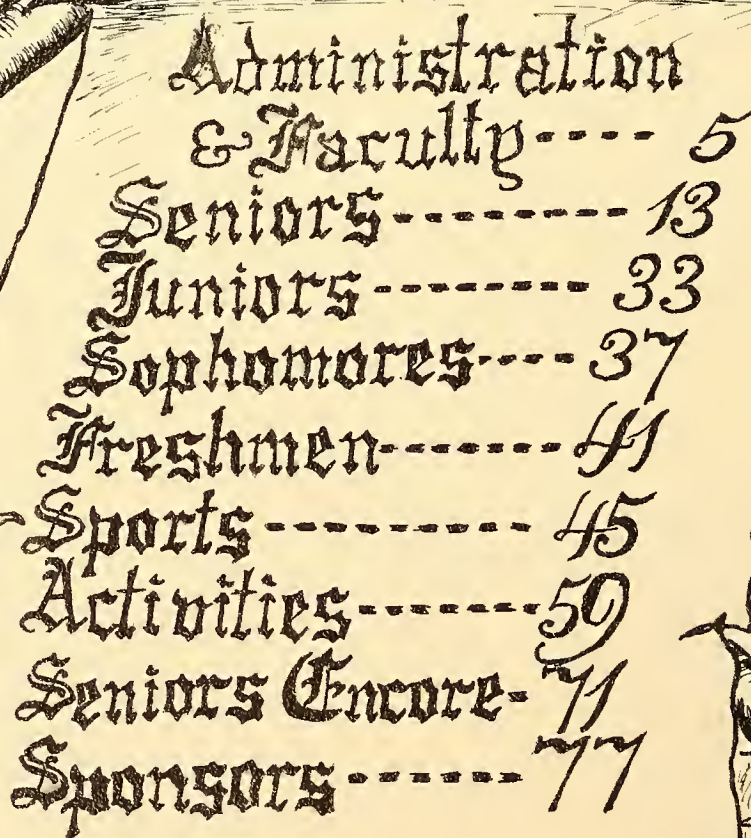 Administration
& Faculty---- 5
Seniors--------- 13
Juniors--------- 33
Sophomores---- 37
Freshmen------- 41
Sports---------- 45
Activities-------59
Seniors Encore- 71
Sponsors------ 77